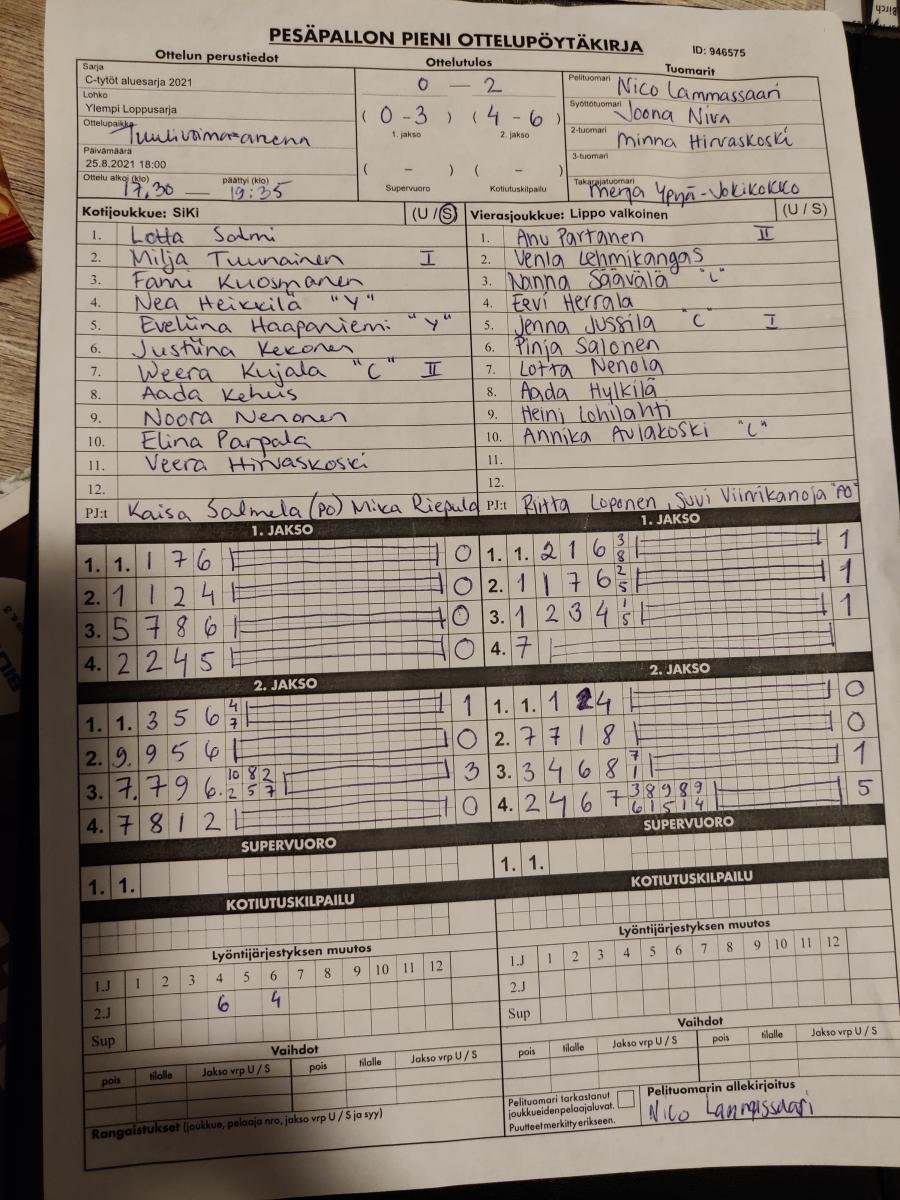 PESÄPALLON PIENI OTTELUPÖYTÄKIRJA
ID: 946575
Ottelun perustiedot
Ottelutulos
Tuomarit
Sarja
C-tytöt aluesarja 2021
Lohko
Ylempi Loppusarja
Ottelupaikka
Tuulivoima-areena
Päivämäärä
25.8.2021 18:00
Ottelu alkoi (klo) päättyi (klo)
17.30 — 19:35
0 — 2
(0-3) (4-6)
1. jakso 2. jakso
( - ) ( - )
Supervuoro Kotiutuskilpailu
Pelituomari Nico Lammassaari
Syöttötuomari Joona Niva
2-tuomari Minna Hirvaskoski
3-tuomari
Takarajatuomari Merja Ypyä-Jokikokko
Kotijoukkue: SiKi (U / S)
1. Lotta Salmi
2. Milja Tuunainen I
3. Fanni Kuosmanen
4. Nea Heikkilä "Y"
5. Eveliina Haapaniemi "Y"
6. Justiina Kekonen
7. Weera Kujala "C" II
8. Aada Kehus
9. Noora Nenonen
10. Elina Parpala
11. Veera Hirvaskoski
12.
PJ:t Kaisa Salmela (PO) Mika Riepula
Vierasjoukkue: Lippo valkoinen (U / S)
1. Anu Partanen II
2. Venla Lehmikangas
3. Nanna Säävälä "L"
4. Eevi Herrala
5. Jenna Jussila "C" I
6. Pinja Salonen
7. Lotta Nenola
8. Aada Hylkilä
9. Heini Lohilahti
10. Annika Aulakoski "L"
11.
12.
PJ:t Riitta Loponen, Suvi Viinikanoja "PO"
1. JAKSO
1. 1. 1 7 6 0
2. 1 1 2 4 0
3. 5 7 8 6 0
4. 2 2 4 5 0
1. JAKSO
1. 1. 2 1 6 3 8 1
2. 1 1 7 6 2 5 1
3. 1 2 3 4 1 5 1
4. 7
2. JAKSO
1. 1. 3 5 6 4 7 1
2. 9. 9 5 6 0
3. 7. 7 9 6. 10 8 2
2 5 7 3
4. 7 8 1 2 0
2. JAKSO
1. 1. 1 2 4 0
2. 7 7 1 8 0
3. 3 4 6 8 7 1 1
4. 2 4 6 7 3 8 9 8 9
6 1 5 1 4 5
SUPERVUORO
1. 1.
SUPERVUORO
1. 1.
KOTIUTUSKILPAILU
KOTIUTUSKILPAILU
Lyöntijärjestyksen muutos
1.J 1 2 3 4 5 6 7 8 9 10 11 12
2.J 6 4
Sup
Lyöntijärjestyksen muutos
1.J 1 2 3 4 5 6 7 8 9 10 11 12
2.J
Sup
Vaihdot
pois tilalle Jakso vrp U / S pois tilalle Jakso vrp U / S
Vaihdot
pois tilalle Jakso vrp U / S pois tilalle Jakso vrp U / S
Rangaistukset (joukkue, pelaaja nro, jakso vrp U / S ja syy)
Pelituomari tarkastanut
joukkueidenpelaajaluvat.
Puutteet merkitty erikseen.
Pelituomarin allekirjoitus
Nico Lammassaari
Birch